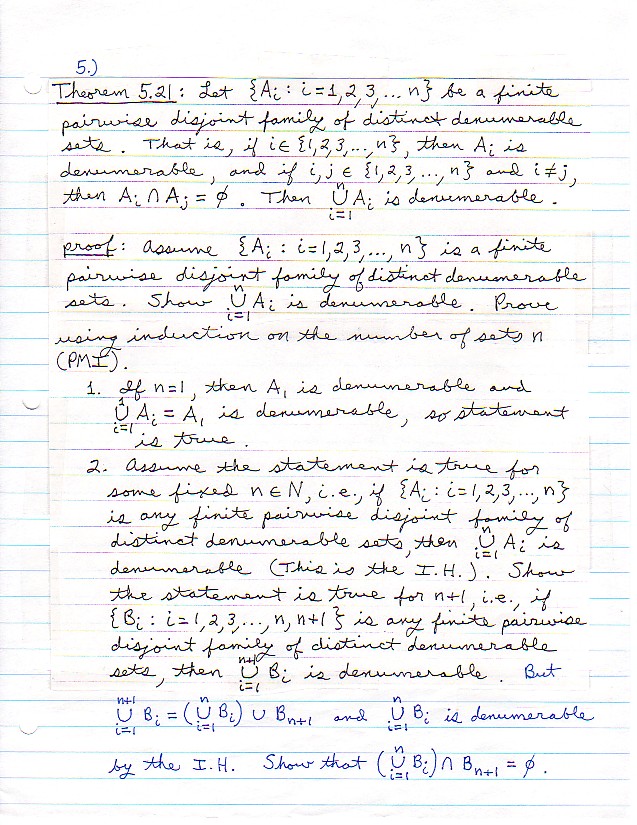 5.)
Theorem 5.21: Let {Aᵢ : i=1,2,3,... n} be a finite
pairwise disjoint family of distinct denumerable
sets. That is, if i ∈ {1,2,3,...,n}, then Aᵢ is
denumerable, and if i,j ∈ {1,2,3,...,n} and i≠j,
then Aᵢ ∩ Aⱼ = ∅. Then ⋃ᵢ₌₁ⁿ Aᵢ is denumerable.
proof: Assume {Aᵢ : i=1,2,3,...,n} is a finite
pairwise disjoint family of distinct denumerable
sets. Show ⋃ᵢ₌₁ⁿ Aᵢ is denumerable. Prove
using induction on the number of sets n
(PMI).
1. If n=1, then A₁ is denumerable and
⋃ᵢ₌₁¹ Aᵢ = A₁ is denumerable, so statement
is true.
2. Assume the statement is true for
some fixed n ∈ N, i.e., if {Aᵢ : i=1,2,3,...,n}
is any finite pairwise disjoint family of
distinct denumerable sets, then ⋃ᵢ₌₁ⁿ Aᵢ is
denumerable (This is the I.H.). Show
the statement is true for n+1, i.e., if
{Bᵢ : i=1,2,3,...,n,n+1} is any finite pairwise
disjoint family of distinct denumerable
sets, then ⋃ᵢ₌₁ⁿ⁺¹ Bᵢ is denumerable. But
⋃ᵢ₌₁ⁿ⁺¹ Bᵢ = (⋃ᵢ₌₁ⁿ Bᵢ) ∪ Bₙ₊₁ and ⋃ᵢ₌₁ⁿ Bᵢ is denumerable
by the I.H. Show that (⋃ᵢ₌₁ⁿ Bᵢ) ∩ Bₙ₊₁ = ∅.